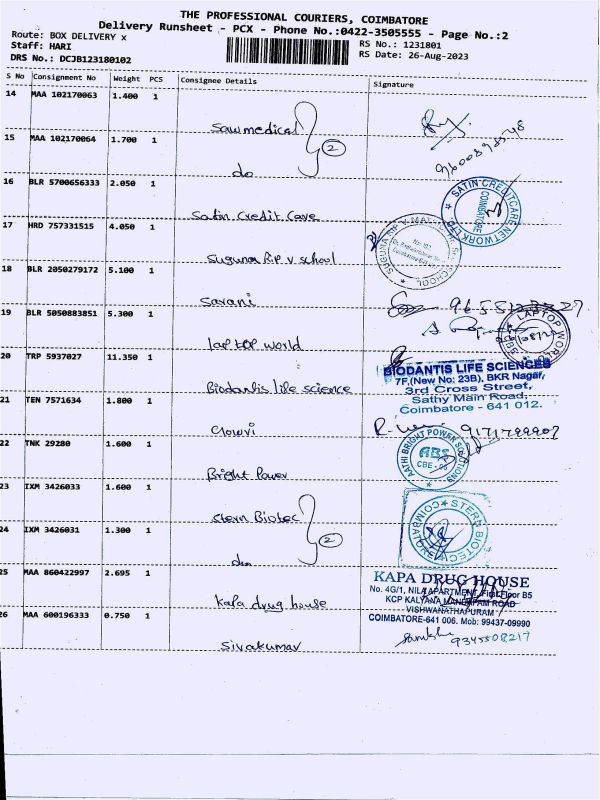 THE PROFESSIONAL COURIERS, COIMBATORE
Delivery Runsheet - PCX - Phone No.:0422-3505555 - Page No.:2
Route: BOX DELIVERY x
RS No.: 1231801
Staff: HARI
RS Date: 26-Aug-2023
DRS No.: DCJB123180102
S No Consignment No Weight PCS Consignee Details Signature
14 MAA 102170063 1.400 1
Saw medical
2
15 MAA 102170064 1.700 1
do
16 BLR 5700656333 2.050 1
Satin Credit Cave
SATIN CREDITCARE NETWORK LTD
COIMBATORE
17 HRD 757331515 4.050 1
Suguna R.P v school
18 BLR 2050279172 5.100 1
Savani
19 BLR 5050883851 5.300 1
lap top world
LAPTOP WORLD
20 TRP 5937027 11.350 1
Biodantis life science
BIODANTIS LIFE SCIENCES
7F,(New No: 23B), BKR Nagar,
3rd Cross Street,
Sathy Main Road,
Coimbatore - 641 012.
21 TEN 7571634 1.800 1
22 TNK 29280 1.600 1
Bright Power
AATHI BRIGHT POWER SOLUTIONS
ABS
CBE
23 IXM 3426033 1.600 1
Stern Biotec
2
STERN BIOTECH
COIMBATORE
24 IXM 3426031 1.300 1
do
25 MAA 860422997 2.695 1
Kapa drug house
KAPA DRUG HOUSE
No. 4G/1, NILA APARTMENT, First Floor B5
KCP KALYANA MANDAPAM ROAD
VISHWANATHAPURAM
COIMBATORE-641 006. Mob: 99437-09990
26 MAA 600196333 0.750 1
Sivakumar
9345508217